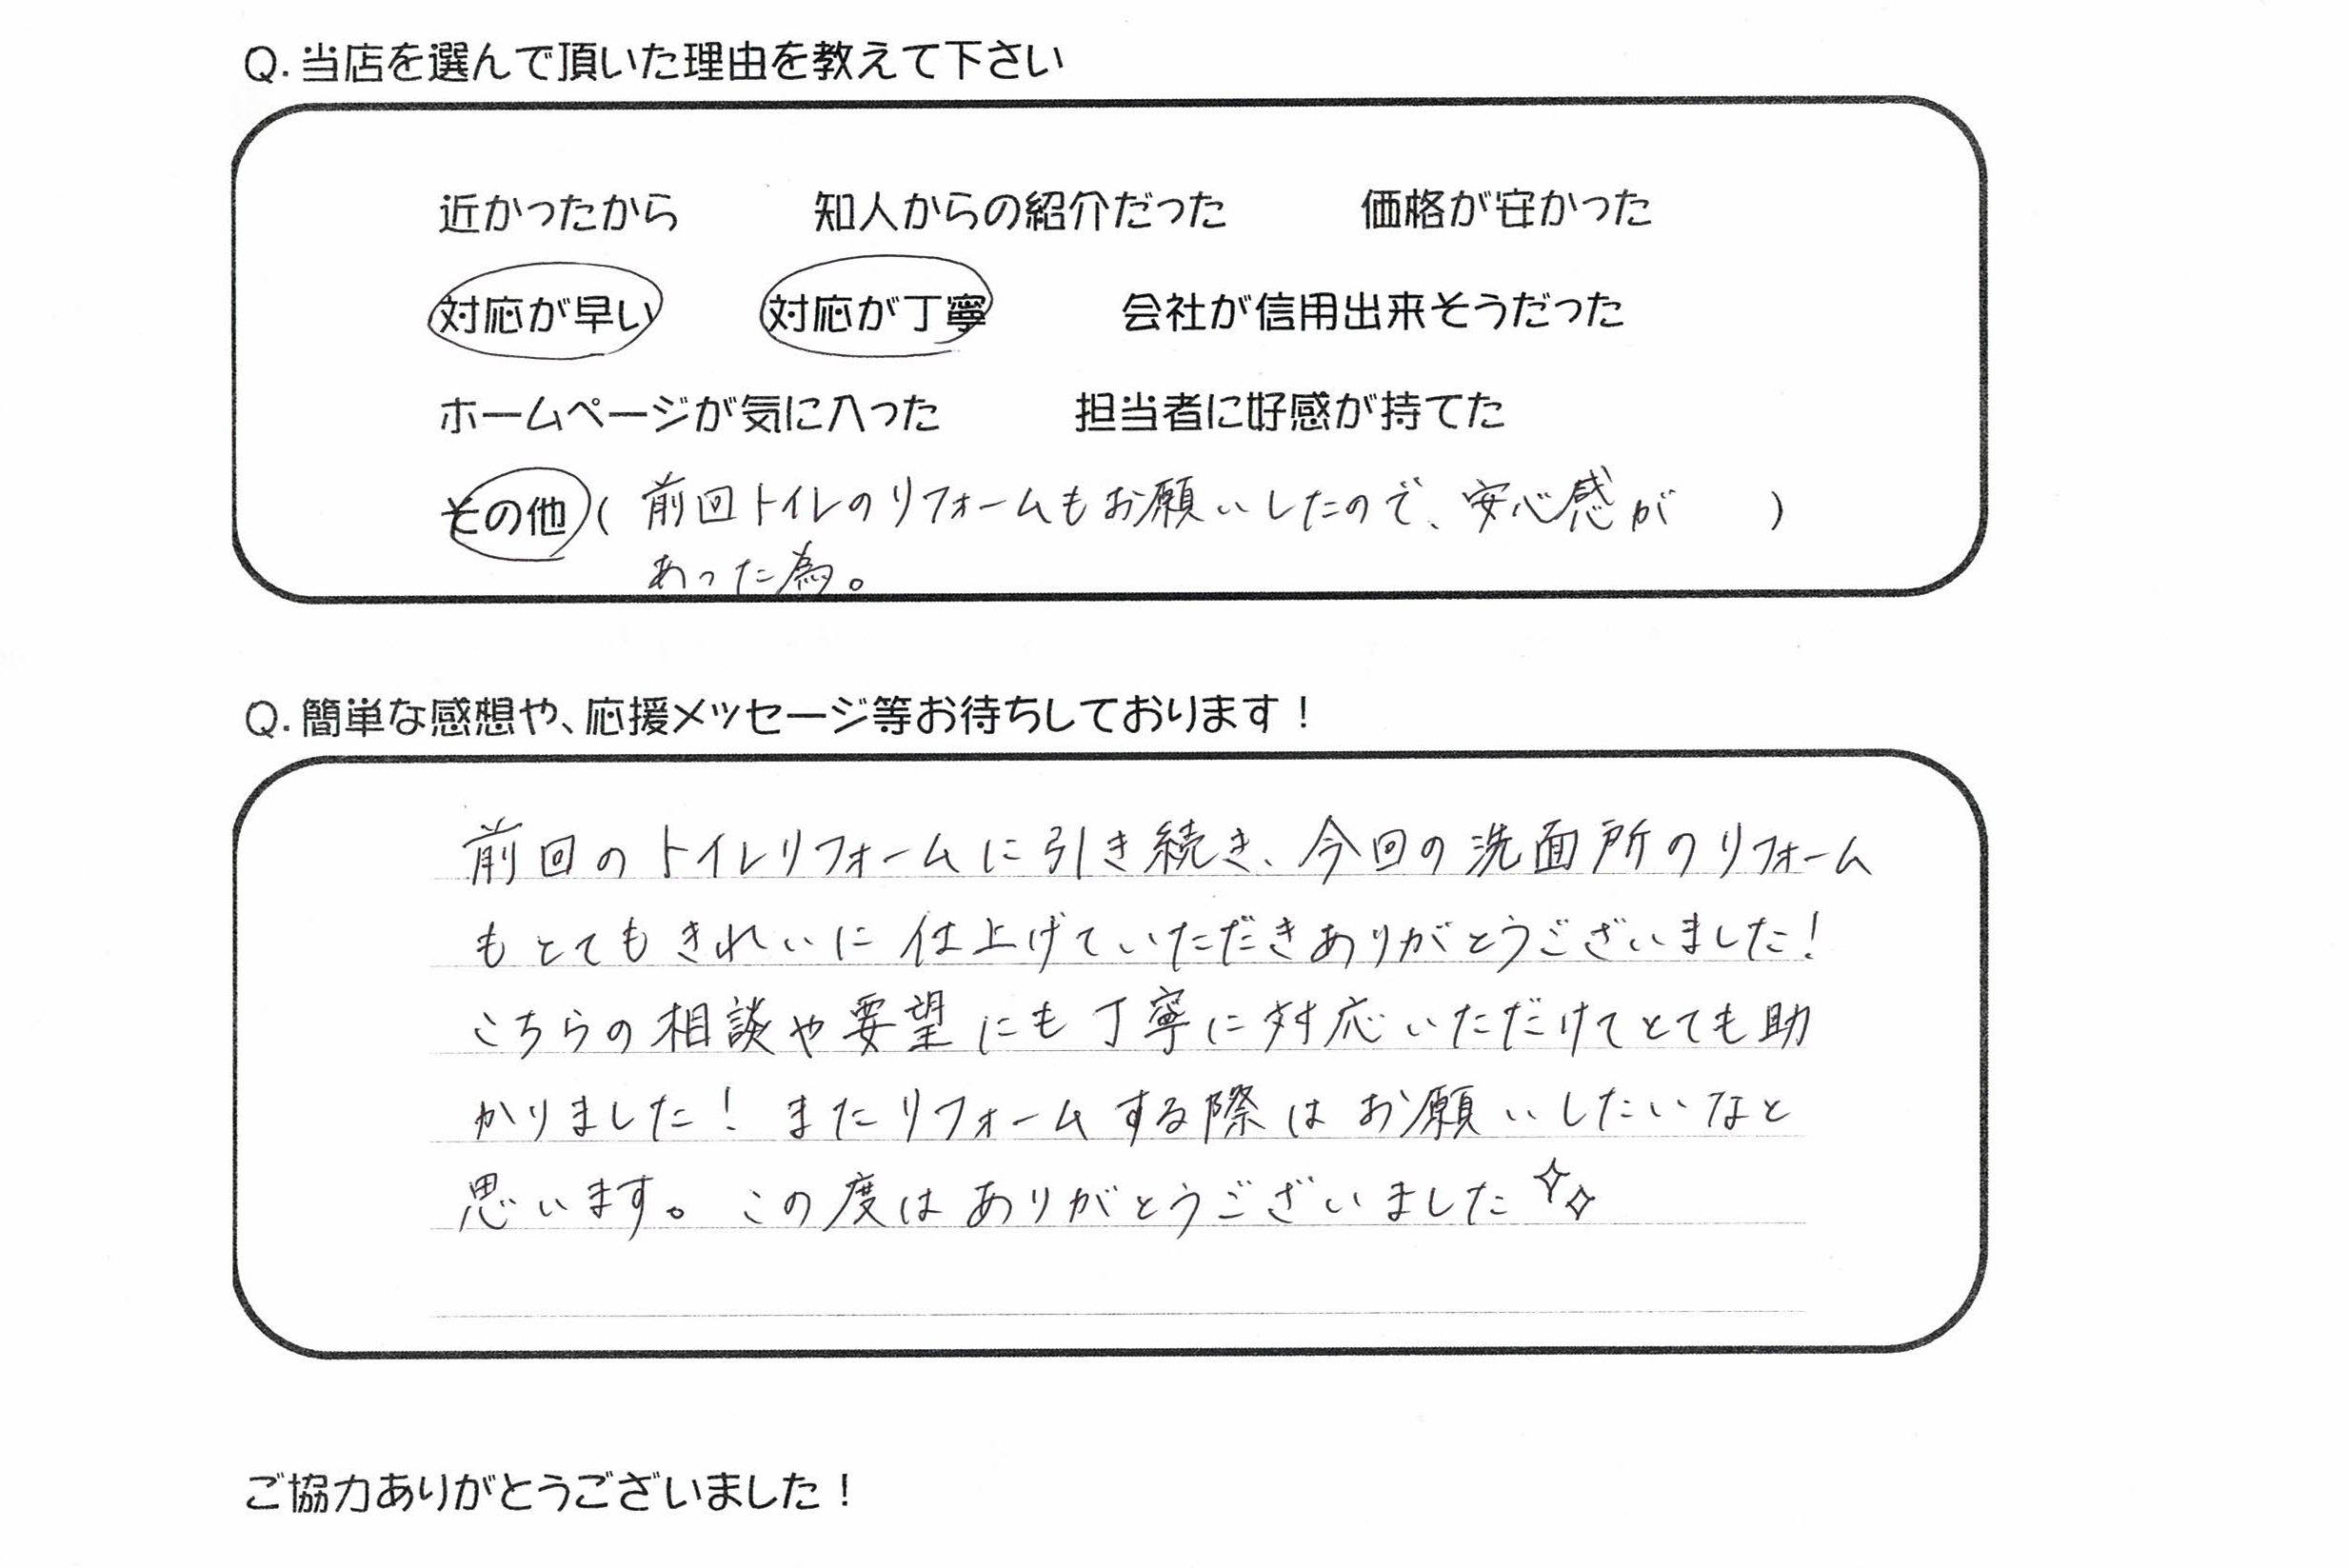 Q.当店を選んで頂いた理由を教えて下さい
近かったから　知人からの紹介だった　価格が安かった
対応が早い　対応が丁寧　会社が信用出来そうだった
ホームページが気に入った　担当者に好感が持てた
その他（前回トイレのリフォームもお願いしたので、安心感が　）
あった為。
Q.簡単な感想や、応援メッセージ等お待ちしております！
前回のトイレリフォームに引き続き、今回の洗面所のリフォーム
もとてもきれいに仕上げていただきありがとうございました！
こちらの相談や要望にも丁寧に対応いただけてとても助
かりました！またリフォームする際はお願いしたいなと
思います。この度はありがとうございました
ご協力ありがとうございました！